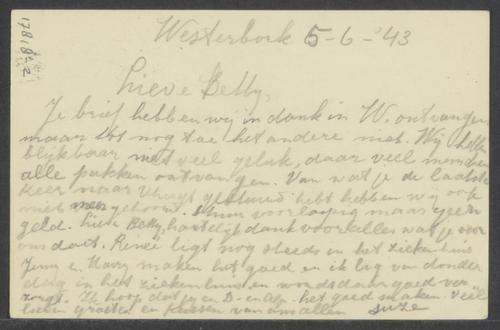 178181-2
Westerbork 5-6-'43
Lieve Betty,
Je brief hebben wij in dank in W. ontvangen,
maar tot nog toe het andere niet. Wij hebben
blijkbaar niet veel geluk, daar veel menschen
alle pakken ontvangen. Van wat je de laatste
keer naar Vught gestuurd hebt hebben wij ook
niets meer gehoord. Stuur voorlopig maar geen
geld. Lieve Betty, hartelijk dank voor alles wat je voor
ons doet. Reneé ligt nog steeds in het ziekenhuis
Jenny en Harry maken het goed en ik lag van donder
dag in het ziekenhuis en word daar goed ver
zorgt. Ik hoop dat jij en D. en het goed maken. Veel
lieve groeten en kussen van ons allen Suze